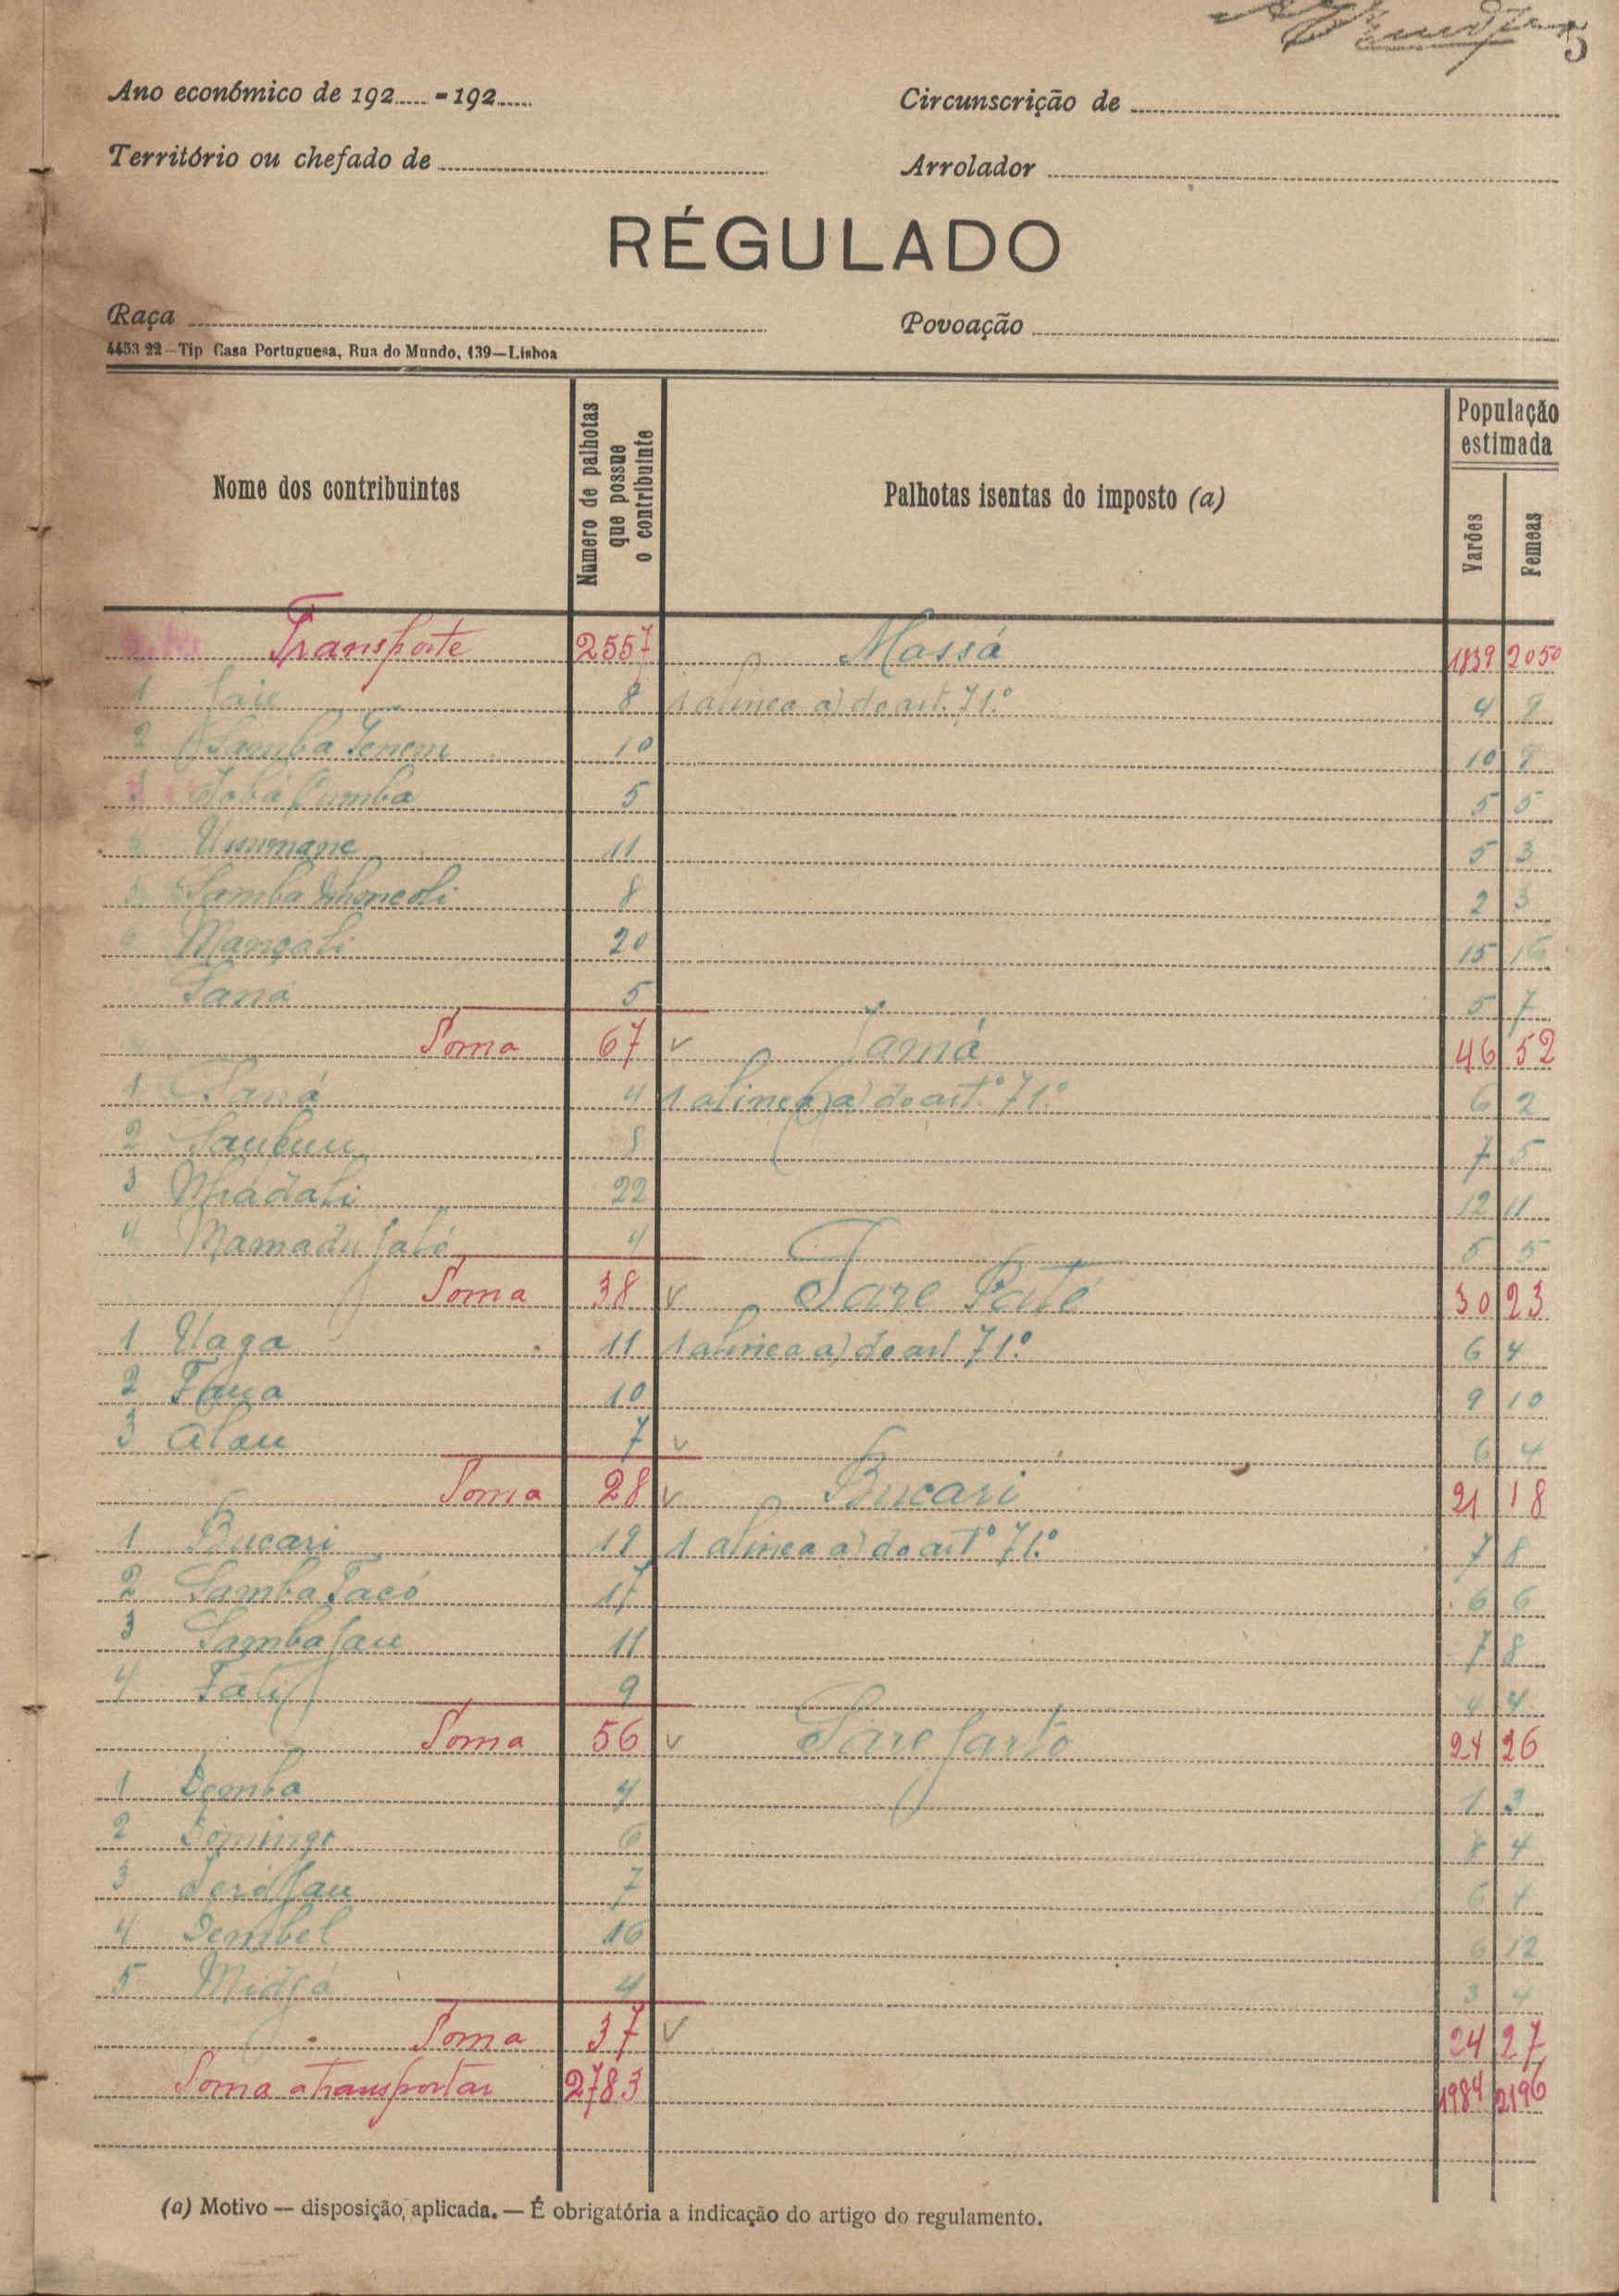 5
Ano económico de 192 - 192
Circunscrição de
Território ou chefado de
Arrolador
RÉGULADO
Raça
Povoação
4453 22 – Tip Casa Portuguesa, Rua do Mundo, 139 — Lisboa
Nome dos contribuintes
Numero de palhotas que possue o contribuinte
Palhotas isentas do imposto (a)
População estimada
Varões
Femeas
Transporte 2557 Massá 1839 2050
1 8 1 alinea a) do art. 71.º 4 9
2 Samba Tenem 10 10 9
3 Cumba 5 5 5
4 Ussumane 11 5 3
5 Samba 8 2 3
6 Mançali 20 15 16
Sana 5 5 7
Soma 67 v 46 52
1 Saná 4 1 alinea a) do artº 71.º 6 2
2 8 7 5
3 22 12 11
4 Mamadu 4 5 5
Soma 38 v Sare Paté 30 23
1 Uaga 11 1 alinea a) do art 71.º 6 4
2 10 9 10
3 Alau 7 v 6 4
Soma 28 v Bucari 21 18
1 Bucari 19 1 alinea a) do artº 71.º 7 8
2 Samba Tacó 17 6 6
3 Samba 11 7 8
4 Fali 9 4 4
Soma 56 v Sare 24 26
1 Demba 4 1 3
2 Domingo 6 8 4
3 7 6 4
4 Dembel 16 6 12
5 4 3 4
Soma 37 v 24 27
Soma a transportar 2783 1984 2196
(a) Motivo — disposição, aplicada. — É obrigatória a indicação do artigo do regulamento.